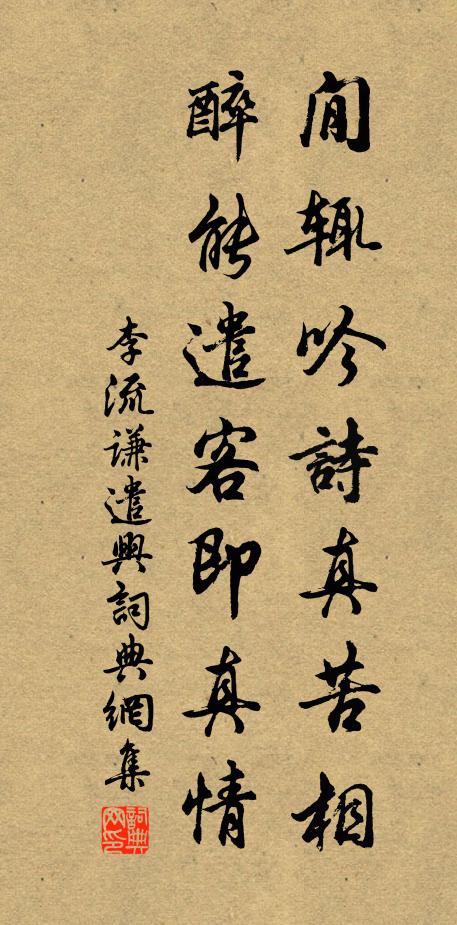 閒輒吟詩真苦相
醉能遣客即真情
李流謙遣興詞典網集
詞典
网印